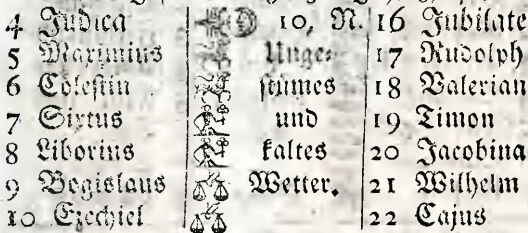 4 Judica 10, N. 16 Jubilate
5 Maximus Unge- 17 Rudolph
6 Cölestin stümes 18 Valerian
7 Sixtus und 19 Timon
8 Liborius kaltes 20 Jacobina
9 Bogislaus Wetter. 21 Wilhelm
10 Ezechiel 22 Cajus